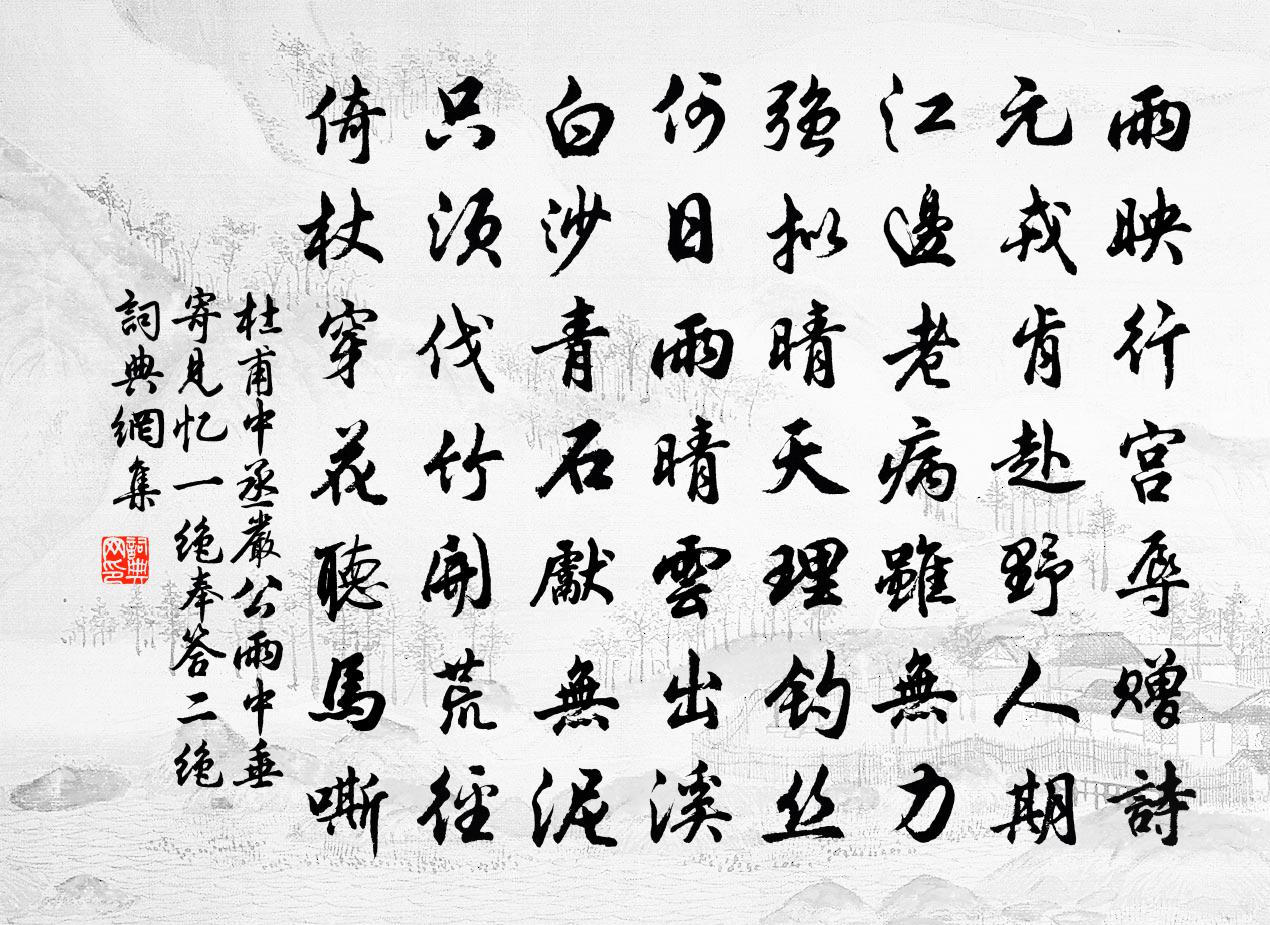 雨映行宮辱贈詩
元戎肯赴野人期
江邊老病雖無力
強拟晴天理釣絲
何日雨晴雲出溪
白沙青石獻無泥
只須伐竹開荒徑
倚杖穿花聽馬嘶
杜甫中丞嚴公雨中垂
寄見忆一絶奉答二絶
詞典網集
詞典网印